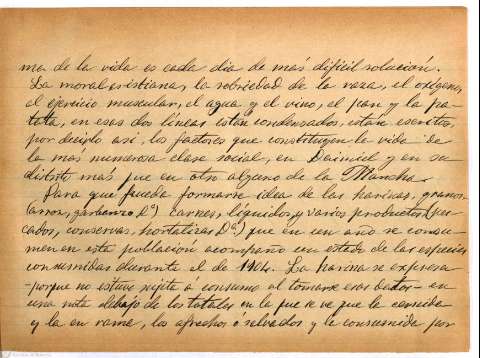 ma de la vida es cada dia de más dificil solución.
La moral cristiana, la sobriedad de la raza, el oxígeno,
el ejercicio muscular, el agua y el vino, el pan y la pa-
tata, en esas dos líneas están condensados, están escritos,
por decirlo asi, los factores que constituyen la vida de
la mas numerosa clase social, en Daimiel y en su
distrito más que en otro alguno de la Mancha.
Para que pueda formarse idea de las harinas, granos
(arroz, garbanzo &ª) carnes, líquidos, y varios productos (pes-
cados, conservas, hortalizas &ª) que en un año se consu-
men en esta población acompaño un estado de las especies
consumidas durante el de 1904. La harina se expresa
-porque no estuvo sujeta a consumo al tomarse esos datos- en
una nota debajo de los totales en la que se ve que la cernida
y la en rama, los afrechos ó salvados y la consumida por